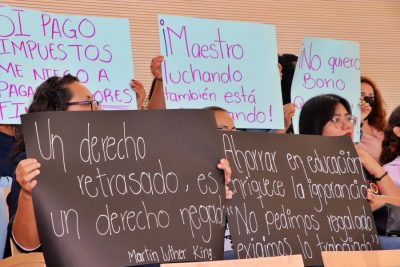 SI PAGO
IMPUESTOS
ME NIEGO A
PAGA
¡Maestro
luchando
también está
!
No quiero
Bono
Un derecho
retrasado, es
un derecho negado
Martin Luther King
Ahorrar en educación
enriquece la ignorancia
"No pedimos regalado
exigimos lo trabajado